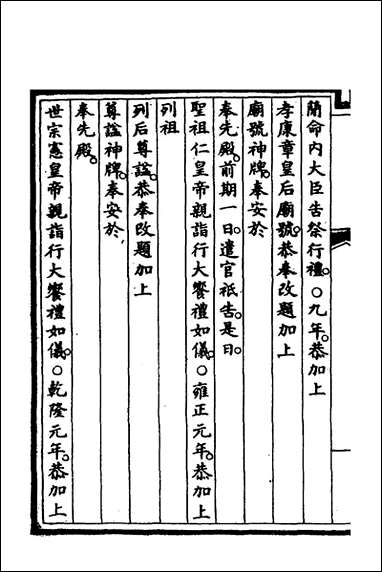 簡命内大臣告祭行禮。○九年。恭加上
孝康章皇后廟號。恭奉改題加上
廟號神牌。奉安於
奉先殿。前期一日。遣官祇告。是日。
聖祖仁皇帝親詣行大饗禮如儀。○雍正元年。恭加上
列祖
列后尊諡。恭奉改題加上
尊諡神牌。奉安於
奉先殿。
世宗憲皇帝親詣行大饗禮如儀。○乾隆元年。恭加上